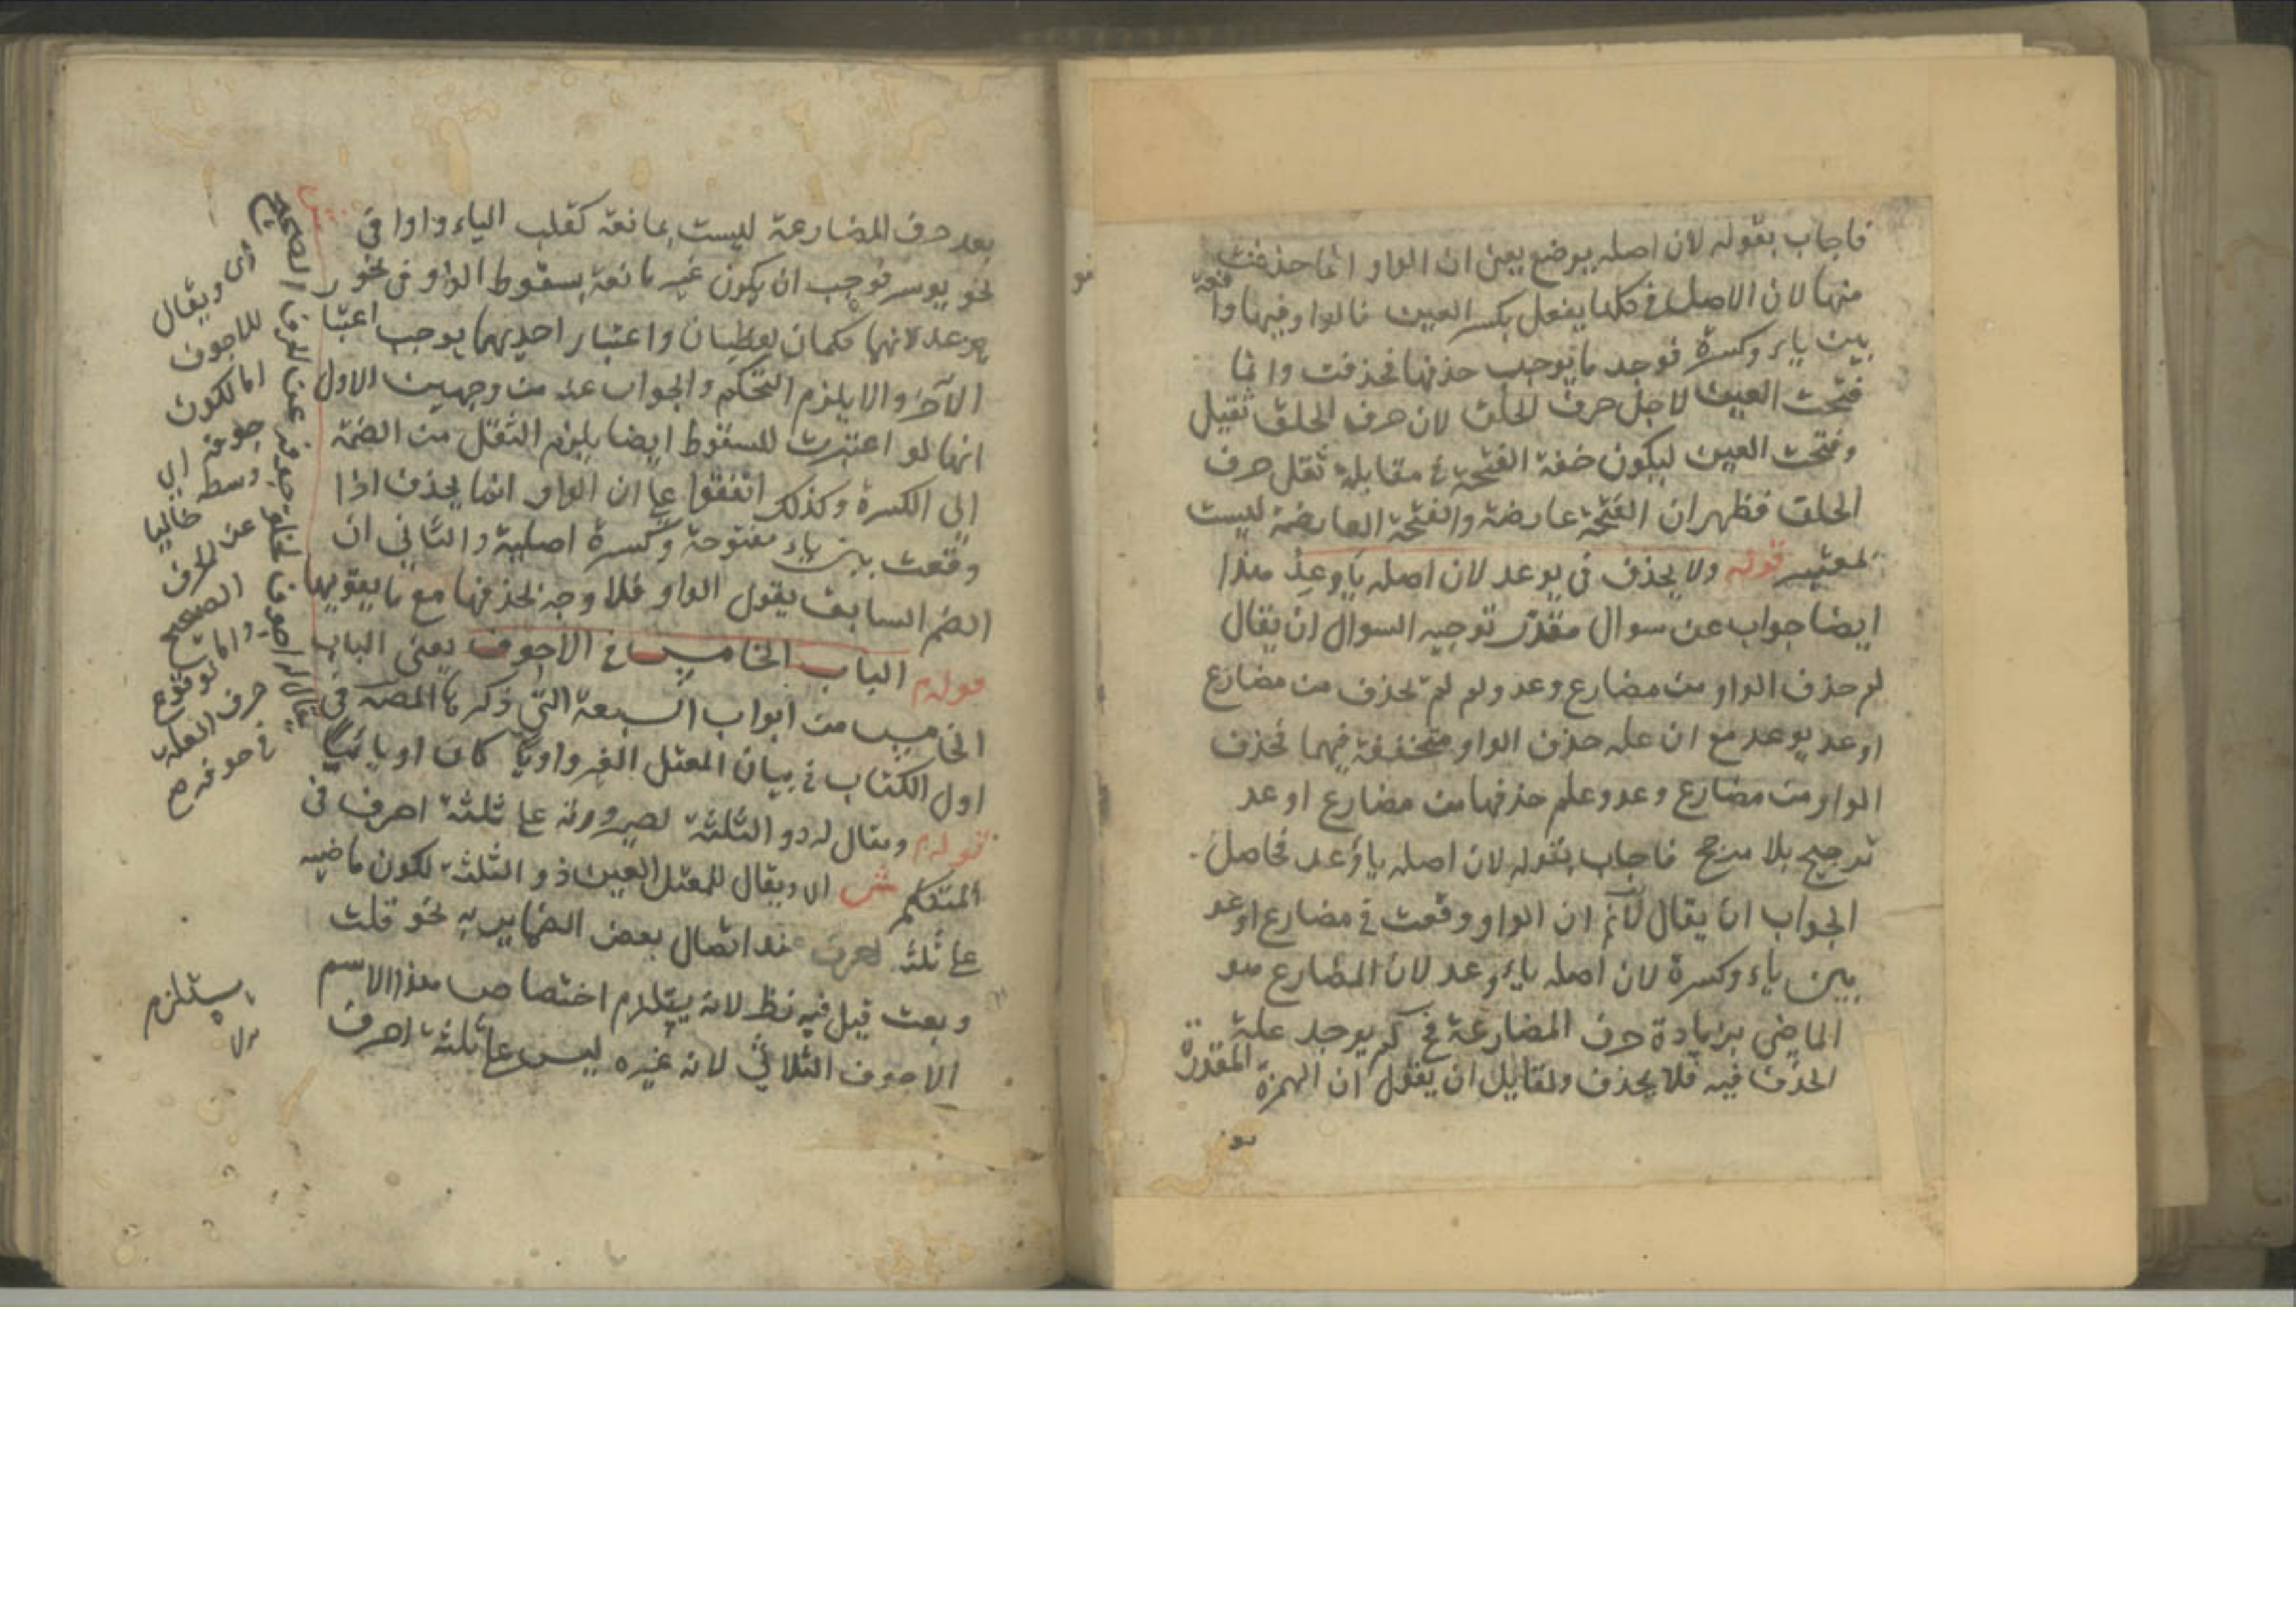 فاجاب بقوله لان اصله يوضع يعنى ان الواو انما حذفت
منها لان الاصل فى كلها يفعل بكسر العين فالواو فيها واقعة
بين ياء وكسرة فوجد ما يوجب حذفها فحذفت وانما
فتحت العين لاجل حرف الحلق لان حرف الحلق ثقيل
وفتحت العين ليكون خفة الفتحة فى مقابلة ثقل حرف
الحلق فظهر ان الفتحة عارضة والفتحة العارضة ليست
بمعتبر قوله ولا يحذف فى يوعد لان اصله ياوعد هذا
ايضا جواب عن سوال مقدر توجيه السوال ان يقال
لم حذف الواو من مضارع وعد ولم لم تحذف من مضارع
اوعد يوعد مع ان علة حذف الواو متحققة فيهما فحذف
الواو من مضارع وعد وعدم حذفها من مضارع اوعد
ترجيح بلا مرجح فاجاب بقوله لان اصله ياوعد فحاصل
الجواب ان يقال لانم ان الواو وقعت فى مضارع اوعد
بين ياء وكسرة لان اصله ياءوعد لان المضارع هو
الماضى بزيادة حرف المضارعة فح لم يوجد علة
الحذف فيه فلا يحذف ولقايل ان يقول ان الهمزة المقدرة
بعد حرف المضارعة ليست بمانعة كقلب الياء واوا فى
نحو يوسر فوجب ان يكون غير مانعة بسقوط الواو فى نحو
يوعد لانهما حكمان واعتبار احديهما يوجب اعتبار
الآخر والا يلزم التحكم والجواب عنه من وجهين الاول
انها لو اعتبرت للسقوط ايضا يلزم الثقل من الضمة
الى الكسرة وكذلك اتفقوا على ان الواو انما يحذف اذا
وقعت بين ياء مفتوحة وكسرة اصلية والثانى ان
الضم السابق يقول الواو فلا وجه لحذفها مع ما يقويها
قوله م الباب الخامس فى الاجوف يعنى الباب
الخامس من ابواب السبعة التى ذكرها المصه فى
اول الكتاب فى بيان المعتل الغير واويا كان او يائيا
قوله م ويقال له ذو الثلثة لصيرورته على ثلثة احرف فى
المتكلم ش اى ويقال للمعتل العين ذو الثلثة لكون ماضيه
على ثلثة احرف عند اتصال بعض الضماير به نحو قلت
وبعت قيل فيه نظر لانه يستلزم اختصاص هذا الاسم
الاجوف الثلاثى لانه غيره ليس على ثلثة احرف
يقال له اجوف لخلو جوفه عن الحرف الصحيح
اى ويقال
للاجوف
اما لكون
جوفه اى
وسطه خاليا
عن الحرف
الصحيح
واما لوقوع
حرف العلة
فى جوفه
يستلزم